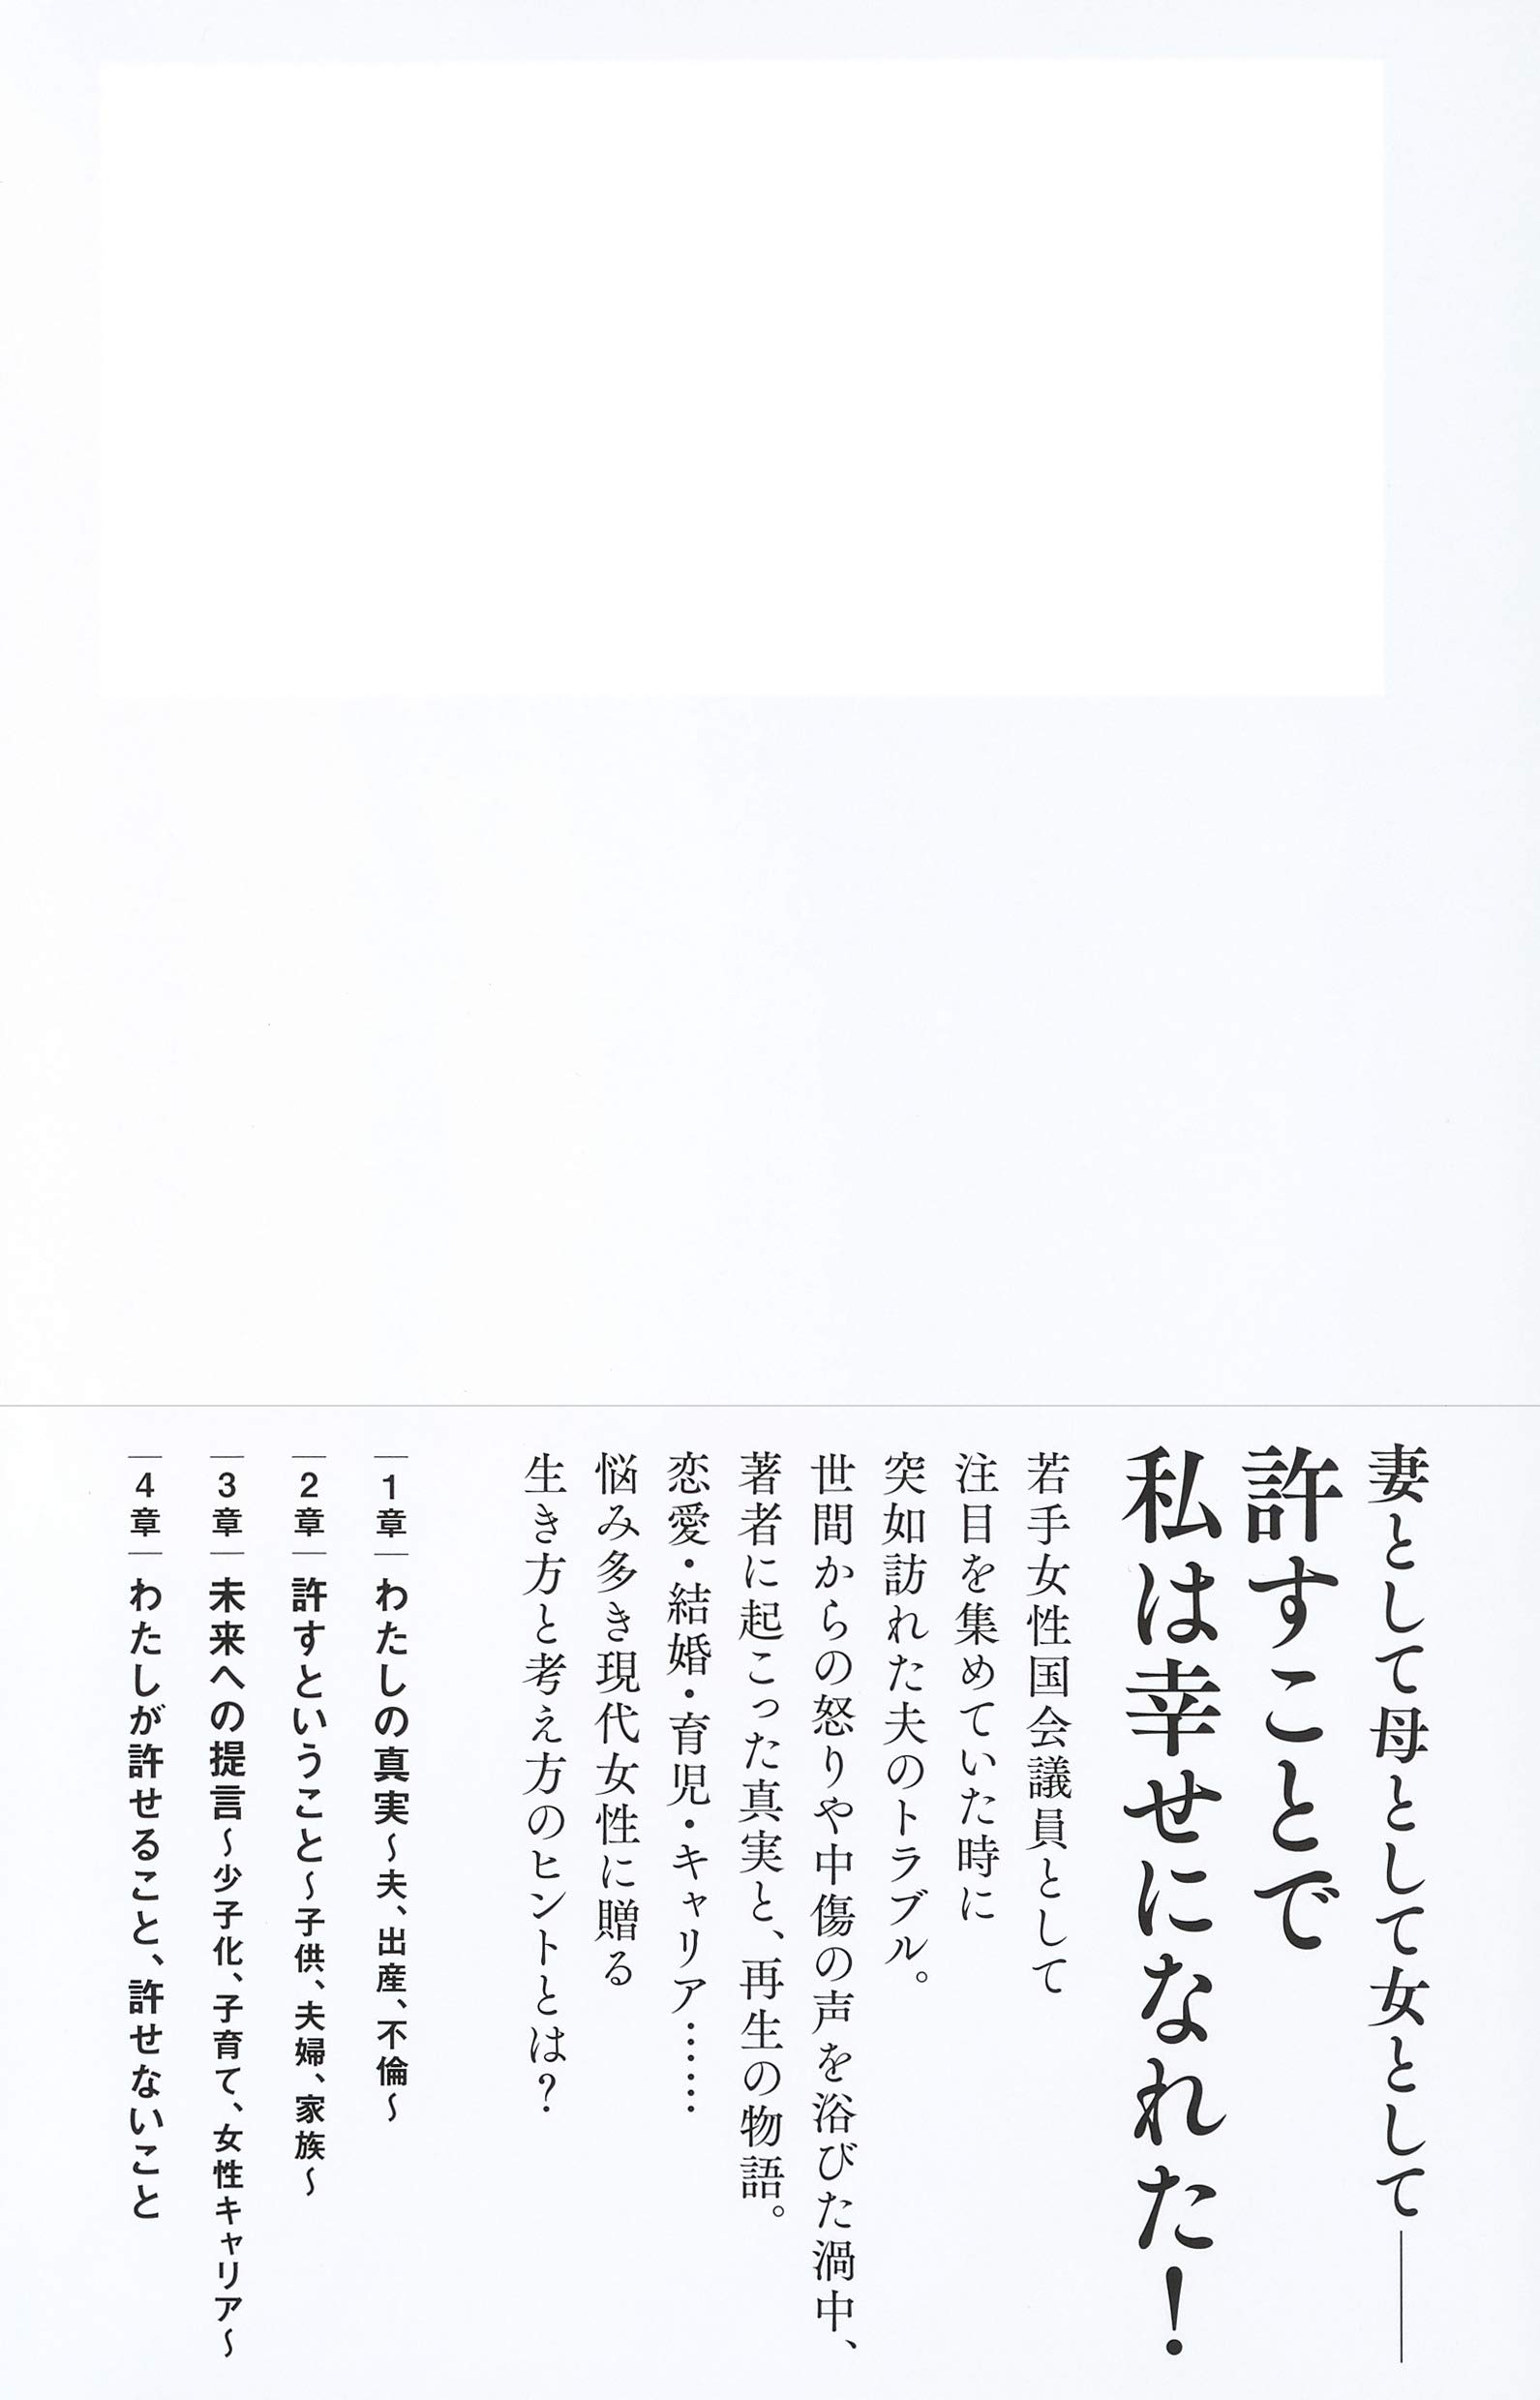 妻として母として女として――
許すことで
私は幸せになれた！
若手女性国会議員として
注目を集めていた時に
突如訪れた夫のトラブル。
世間からの怒りや中傷の声を浴びた渦中、
著者に起こった真実と、再生の物語。
恋愛・結婚・育児・キャリア……
悩み多き現代女性に贈る
生き方と考え方のヒントとは？
1章 わたしの真実～夫、出産、不倫～
2章 許すということ～子供、夫婦、家族～
3章 未来への提言～少子化、子育て、女性キャリア～
4章 わたしが許せること、許せないこと